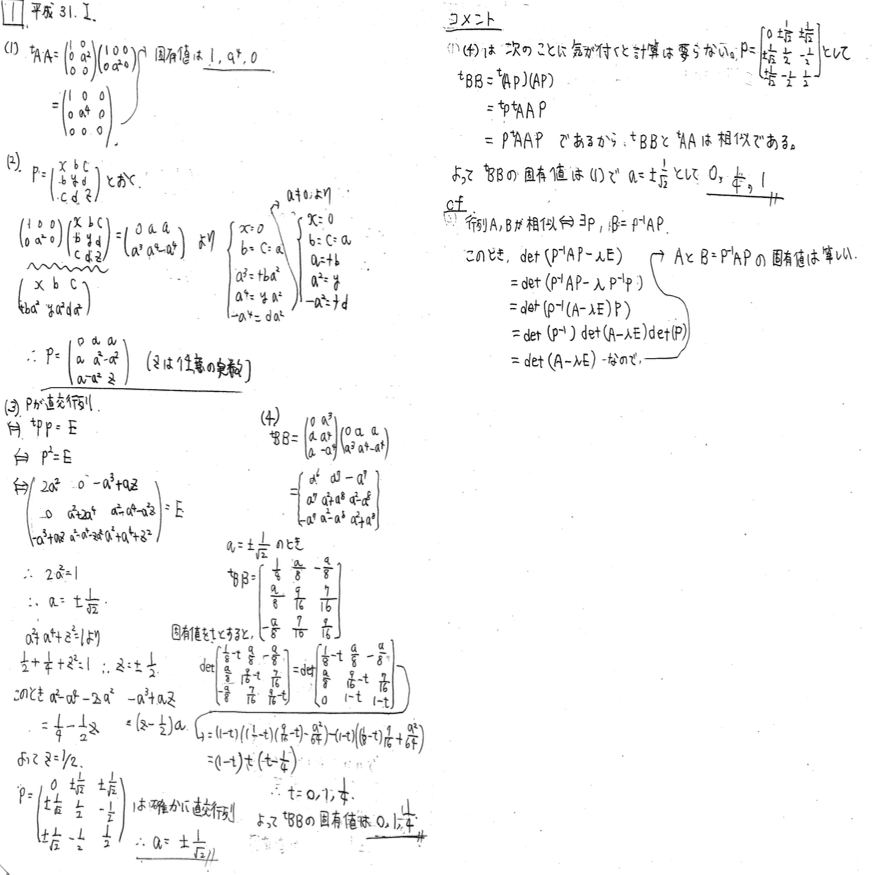 1 平成31. I.
(1) ᵗAA = (1 0 / 0 a² / 0 0)(1 0 0 / 0 a² 0) 固有値は 1, a⁴, 0
= (1 0 0 / 0 a⁴ 0 / 0 0 0).
(2). P = (x b c / b y d / c d z) とおく.
(1 0 0 / 0 a² 0)(x b c / b y d / c d z) = (0 a a / a³ a⁴ -a⁴) より { x=0 / b=c=a / a³=ba² / a⁴=ya² / -a⁴=da² a≠0より { x=0 / b=c=a / a=b / a²=y / -a²=d
(x b c / ba² ya² da²)
∴ P = (0 a a / a a² -a² / a -a² z) (zは任意の実数)
(3) Pが直交行列.
⇔ ᵗPP = E
⇔ P² = E
⇔ (2a² 0 -a³+az / 0 a²+2a⁴ a²-a⁴-a²z / -a³+az a²-a⁴-za² a²+a⁴+z²) = E
∴ 2a²=1
∴ a = ±1/√2.
a²+a⁴+z²=1より
1/2+1/4+z²=1 ∴ z=±1/2.
このとき a²-a⁴-za² -a³+az
= 1/4-1/2z =(z-1/2)a.
よって z=1/2.
P = (0 ±1/√2 ±1/√2 / ±1/√2 1/2 -1/2 / ±1/√2 -1/2 1/2) は確かに直交行列
∴ a = ±1/√2
(4)
ᵗBB = (0 a³ / a a⁴ / a -a⁴)(0 a a / a³ a⁴ -a⁴)
= (a⁶ a⁷ -a⁷ / a⁷ a²+a⁸ a²-a⁸ / -a⁷ a²-a⁸ a²+a⁸)
a = ±1/√2 のとき
ᵗBB = (1/8 a/8 -a/8 / a/8 9/16 7/16 / -a/8 7/16 9/16)
固有値をtとすると,
det(1/8-t a/8 -a/8 / a/8 9/16-t 7/16 / -a/8 7/16 9/16-t) = det(1/8-t a/8 -a/8 / a/8 9/16-t 7/16 / 0 1-t 1-t)
= (1-t)((1/8-t)(9/16-t)-a²/64)-(1-t)((1/8-t)7/16+a²/64)
= (1-t)t(t-1/4)
∴ t=0, 1, 1/4.
よって ᵗBBの固有値は 0, 1, 1/4
コメント
(4)は 次のことに気が付くと計算は要らない。P = (0 ±1/√2 ±1/√2 / ±1/√2 1/2 -1/2 / ±1/√2 -1/2 1/2) として
ᵗBB = ᵗ(AP)(AP)
= ᵗPᵗAAP
= PᵗAAP であるから、ᵗBBとᵗAAは相似である。
よって ᵗBBの固有値は(1)で a=±1/√2 として 0, 1/4, 1
cf
行列A, Bが相似 ⇔ ∃P, B=P⁻¹AP.
このとき, det(P⁻¹AP-λE) AとB=P⁻¹APの固有値は等しい.
= det(P⁻¹AP-λP⁻¹P)
= det(P⁻¹(A-λE)P)
= det(P⁻¹)det(A-λE)det(P)
= det(A-λE) なので,